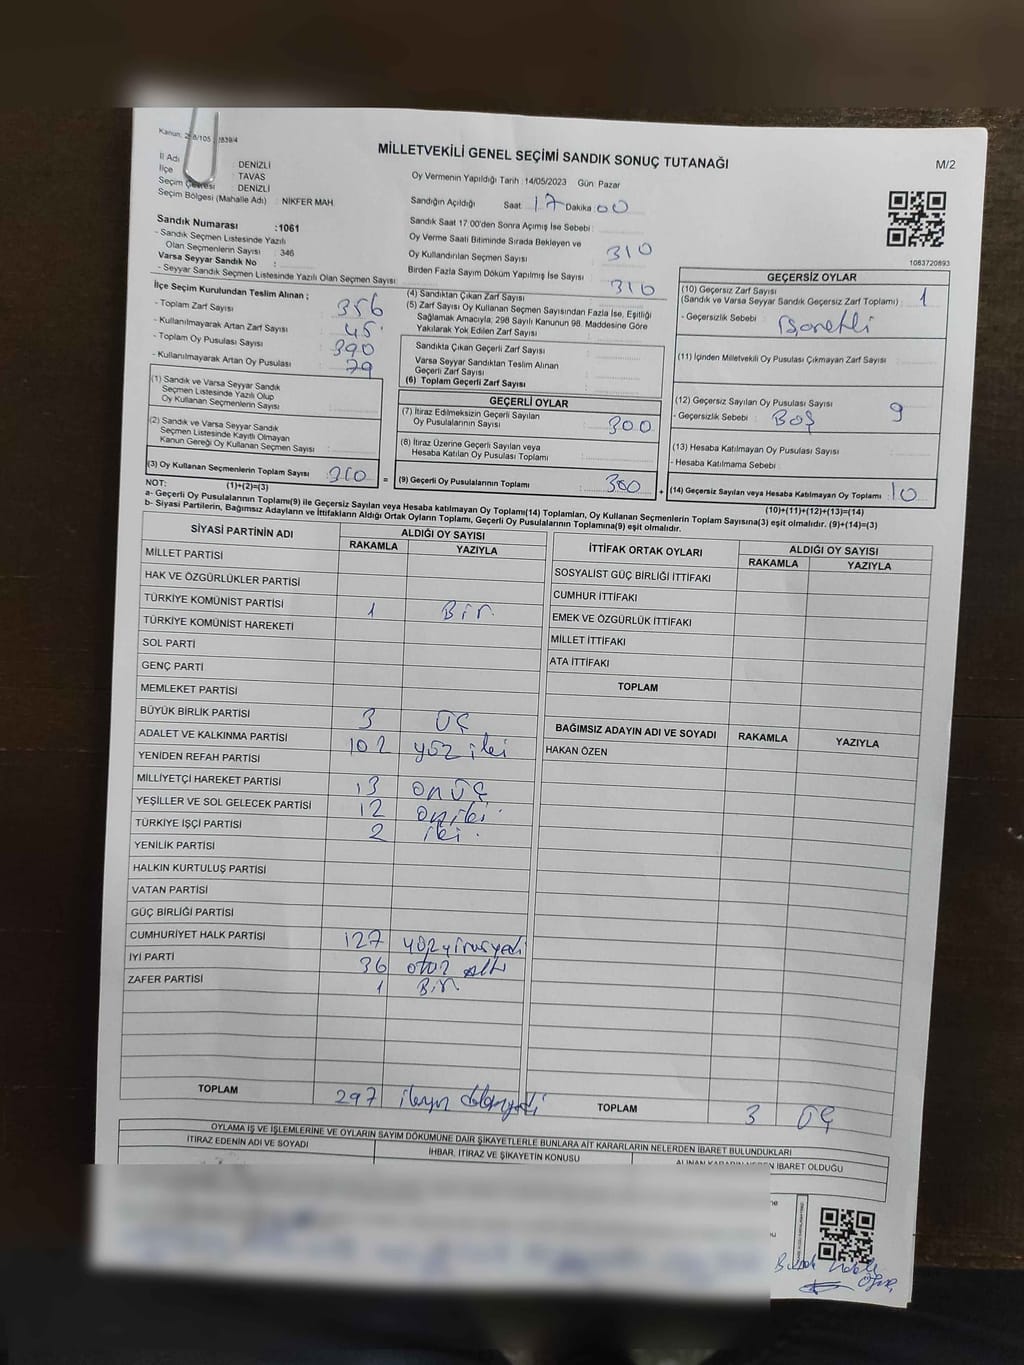 Kanun: 298/105 1839/4
MİLLETVEKİLİ GENEL SEÇİMİ SANDIK SONUÇ TUTANAĞI
M/2
İl Adı : DENİZLİ
İlçe : TAVAS
Seçim Çevresi : DENİZLİ
Seçim Bölgesi (Mahalle Adı) : NİKFER MAH.
Oy Vermenin Yapıldığı Tarih :14/05/2023 Gün: Pazar
Sandığın Açıldığı Saat 17 Dakika 00
Sandık Saat 17:00'den Sonra Açımış İse Sebebi :
Oy Verme Saati Bitiminde Sırada Bekleyen ve
Oy Kullandırılan Seçmen Sayısı 310
Birden Fazla Sayım Döküm Yapılmış İse Sayısı :
Sandık Numarası :1061
- Sandık Seçmen Listesinde Yazılı
Olan Seçmenlerin Sayısı : 346
Varsa Seyyar Sandık No :
- Seyyar Sandık Seçmen Listesinde Yazılı Olan Seçmen Sayısı:
1063720893
İlçe Seçim Kurulundan Teslim Alınan ;
- Toplam Zarf Sayısı : 356
- Kullanılmayarak Artan Zarf Sayısı : 45
- Toplam Oy Pusulası Sayısı : 390
- Kullanılmayarak Artan Oy Pusulası : 79
(1) Sandık ve Varsa Seyyar Sandık
Seçmen Listesinde Yazılı Olup
Oy Kullanan Seçmenlerin Sayısı :
(2) Sandık ve Varsa Seyyar Sandık
Seçmen Listesinde Kayıtlı Olmayan
Kanun Gereği Oy Kullanan Seçmen Sayısı :
(3) Oy Kullanan Seçmenlerin Toplam Sayısı : 310 =
(4) Sandıktan Çıkan Zarf Sayısı : 310
(5) Zarf Sayısı Oy Kullanan Seçmen Sayısından Fazla İse, Eşitliği
Sağlamak Amacıyla, 298 Sayılı Kanunun 98. Maddesine Göre
Yakılarak Yok Edilen Zarf Sayısı :
Sandıkta Çıkan Geçerli Zarf Sayısı :
Varsa Seyyar Sandıktan Teslim Alınan
Geçerli Zarf Sayısı :
(6) Toplam Geçerli Zarf Sayısı :
GEÇERLİ OYLAR
(7) İtiraz Edilmeksizin Geçerli Sayılan
Oy Pusulalarının Sayısı : 300
(8) İtiraz Üzerine Geçerli Sayılan veya
Hesaba Katılan Oy Pusulası Toplamı :
(9) Geçerli Oy Pusulalarının Toplamı : 300 +
GEÇERSİZ OYLAR
(10) Geçersiz Zarf Sayısı
(Sandık ve Varsa Seyyar Sandık Geçersiz Zarf Toplamı) : 1
- Geçersizlik Sebebi : işaretli
(11) İçinden Milletvekili Oy Pusulası Çıkmayan Zarf Sayısı :
(12) Geçersiz Sayılan Oy Pusulası Sayısı : 9
- Geçersizlik Sebebi : Boş
(13) Hesaba Katılmayan Oy Pusulası Sayısı :
- Hesaba Katılmama Sebebi :
(14) Geçersiz Sayılan veya Hesaba Katılmayan Oy Toplamı : 10
NOT: (1)+(2)=(3)
(10)+(11)+(12)+(13)=(14)
a- Geçerli Oy Pusulalarının Toplamı(9) ile Geçersiz Sayılan veya Hesaba katılmayan Oy Toplamı(14) Toplamları, Oy Kullanan Seçmenlerin Toplam Sayısına(3) eşit olmalıdır. (9)+(14)=(3)
b- Siyasi Partilerin, Bağımsız Adayların ve İttifakların Aldığı Ortak Oyların Toplamı, Geçerli Oy Pusulalarının Toplamına(9) eşit olmalıdır.
SİYASİ PARTİNİN ADI ALDIĞI OY SAYISI
RAKAMLA YAZIYLA
MİLLET PARTİSİ
HAK VE ÖZGÜRLÜKLER PARTİSİ
TÜRKİYE KOMÜNİST PARTİSİ 1 Bir
TÜRKİYE KOMÜNİST HAREKETİ
SOL PARTİ
GENÇ PARTİ
MEMLEKET PARTİSİ
BÜYÜK BİRLİK PARTİSİ 3 ÜÇ
ADALET VE KALKINMA PARTİSİ 102 yüz iki
YENİDEN REFAH PARTİSİ
MİLLİYETÇİ HAREKET PARTİSİ 13 on ÜÇ
YEŞİLLER VE SOL GELECEK PARTİSİ 12 on iki
TÜRKİYE İŞÇİ PARTİSİ 2 iki
YENİLİK PARTİSİ
HALKIN KURTULUŞ PARTİSİ
VATAN PARTİSİ
GÜÇ BİRLİĞİ PARTİSİ
CUMHURİYET HALK PARTİSİ 127 yüz yirmi yedi
İYİ PARTİ 36 otuz altı
ZAFER PARTİSİ 1 Bir
TOPLAM 297 ikiyüz doksanyedi
İTTİFAK ORTAK OYLARI ALDIĞI OY SAYISI
RAKAMLA YAZIYLA
SOSYALİST GÜÇ BİRLİĞİ İTTİFAKI
CUMHUR İTTİFAKI
EMEK VE ÖZGÜRLÜK İTTİFAKI
MİLLET İTTİFAKI
ATA İTTİFAKI
TOPLAM
BAĞIMSIZ ADAYIN ADI VE SOYADI RAKAMLA YAZIYLA
HAKAN ÖZEN
TOPLAM 3 ÜÇ
OYLAMA İŞ VE İŞLEMLERİNE VE OYLARIN SAYIM DÖKÜMÜNE DAİR ŞİKAYETLERLE BUNLARA AİT KARARLARIN NELERDEN İBARET BULUNDUKLARI
İTİRAZ EDENİN ADI VE SOYADI
İHBAR, İTİRAZ VE ŞİKAYETİN KONUSU
ALINAN KARARIN NEDEN İBARET OLDUĞU